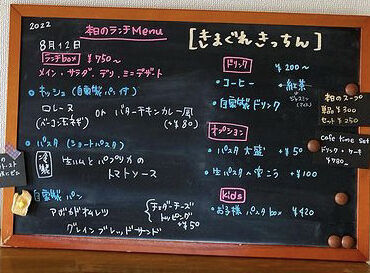 2022
本日のランチMenu
8月12日
ランチbox ¥750〜
メイン・サラダ、デリ、ミニデザート
キッシュ(自家製パン付)
ロレーヌ
(ベーコン玉ネギ)
or バターチキンカレー風
(+¥80)
パスタ(ショートパスタ)
冷製 生ハムとパプリカの
トマトソース
自家製パン
アボカドオムレツ
グレインブレッドサンド
チェダーチーズ
トッピング
+¥50
[きまぐれきっちん]
ドリンク ¥200〜
・コーヒー ・紅茶
・自家製ドリンク
オプション
・パスタ大盛 +¥50
・生パスタへ変こう +¥100
kids
・お子様パスタbox ¥420
本日のスープ
単品¥300
セット¥250
cafe time set
ドリンク・ケーキ
¥780